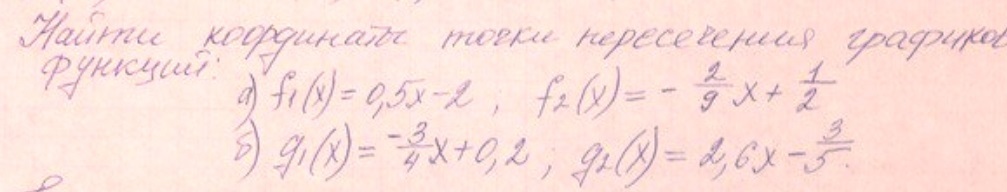 Найти координаты точки пересечения графиков
функций:
а) f₁(x) = 0,5x - 2 ; f₂(x) = - 2/9 x + 1/2
б) g₁(x) = -3/4 x + 0,2 ; g₂(x) = 2,6x - 3/5.